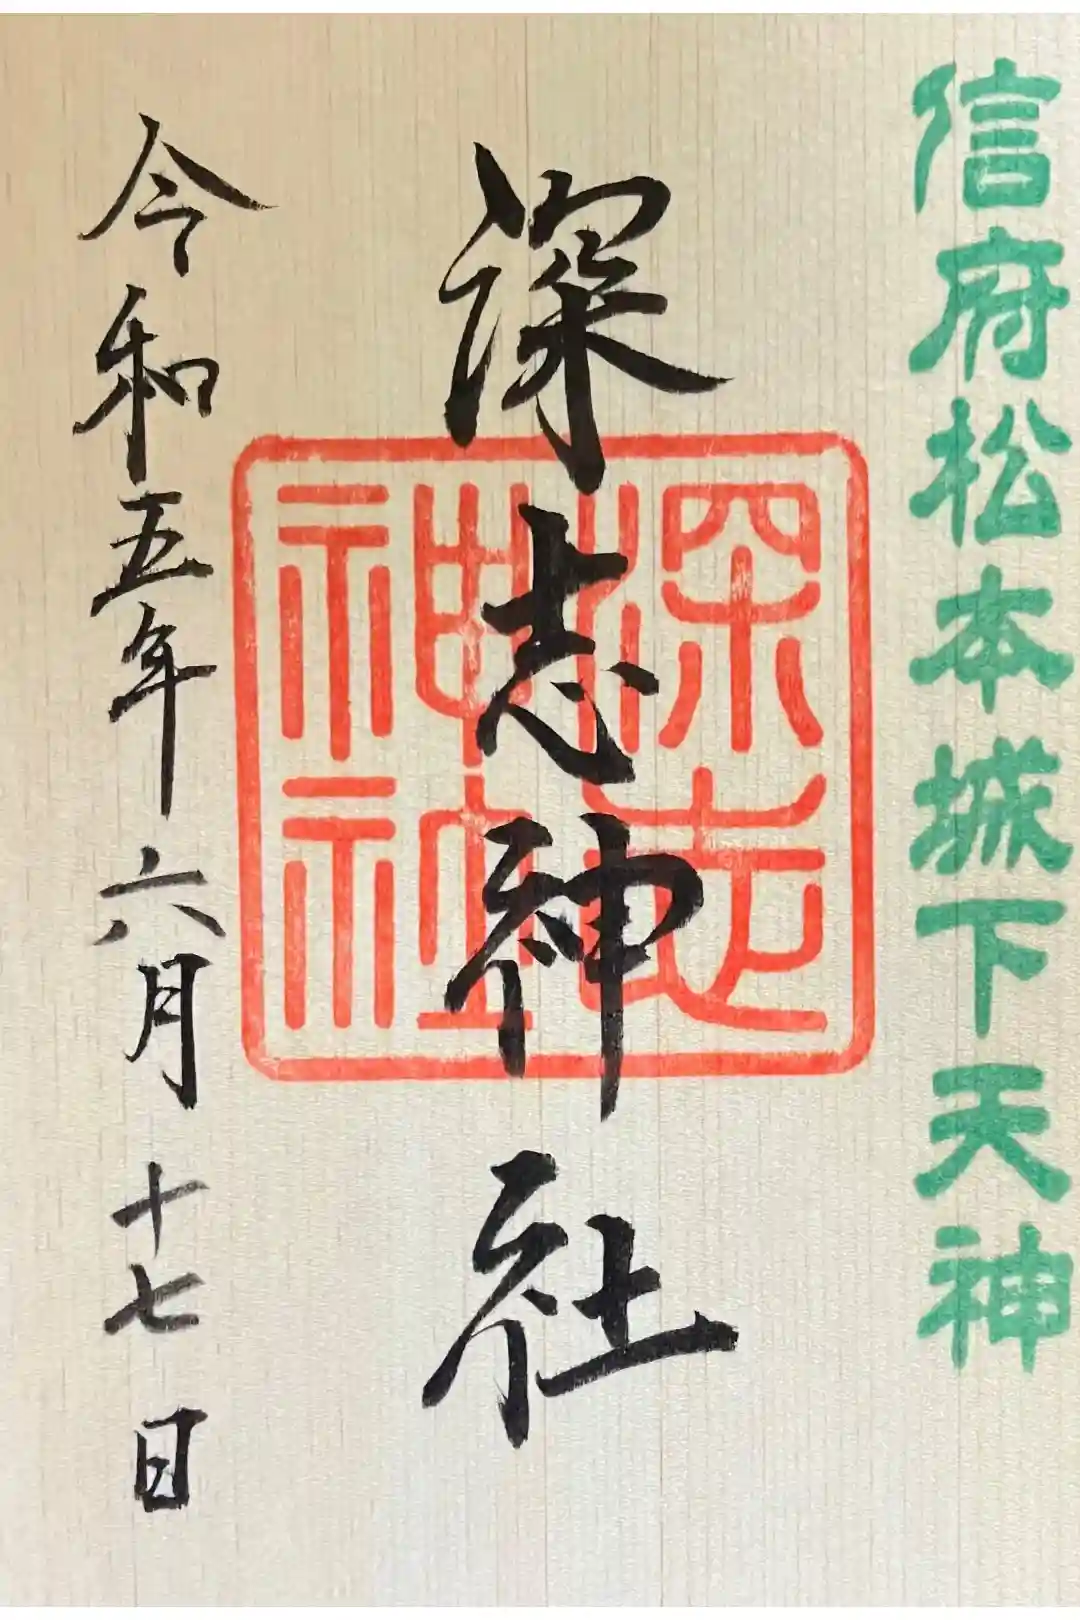 信府松本城下天神
深志神社
深志
神社
令和五年六月十七日